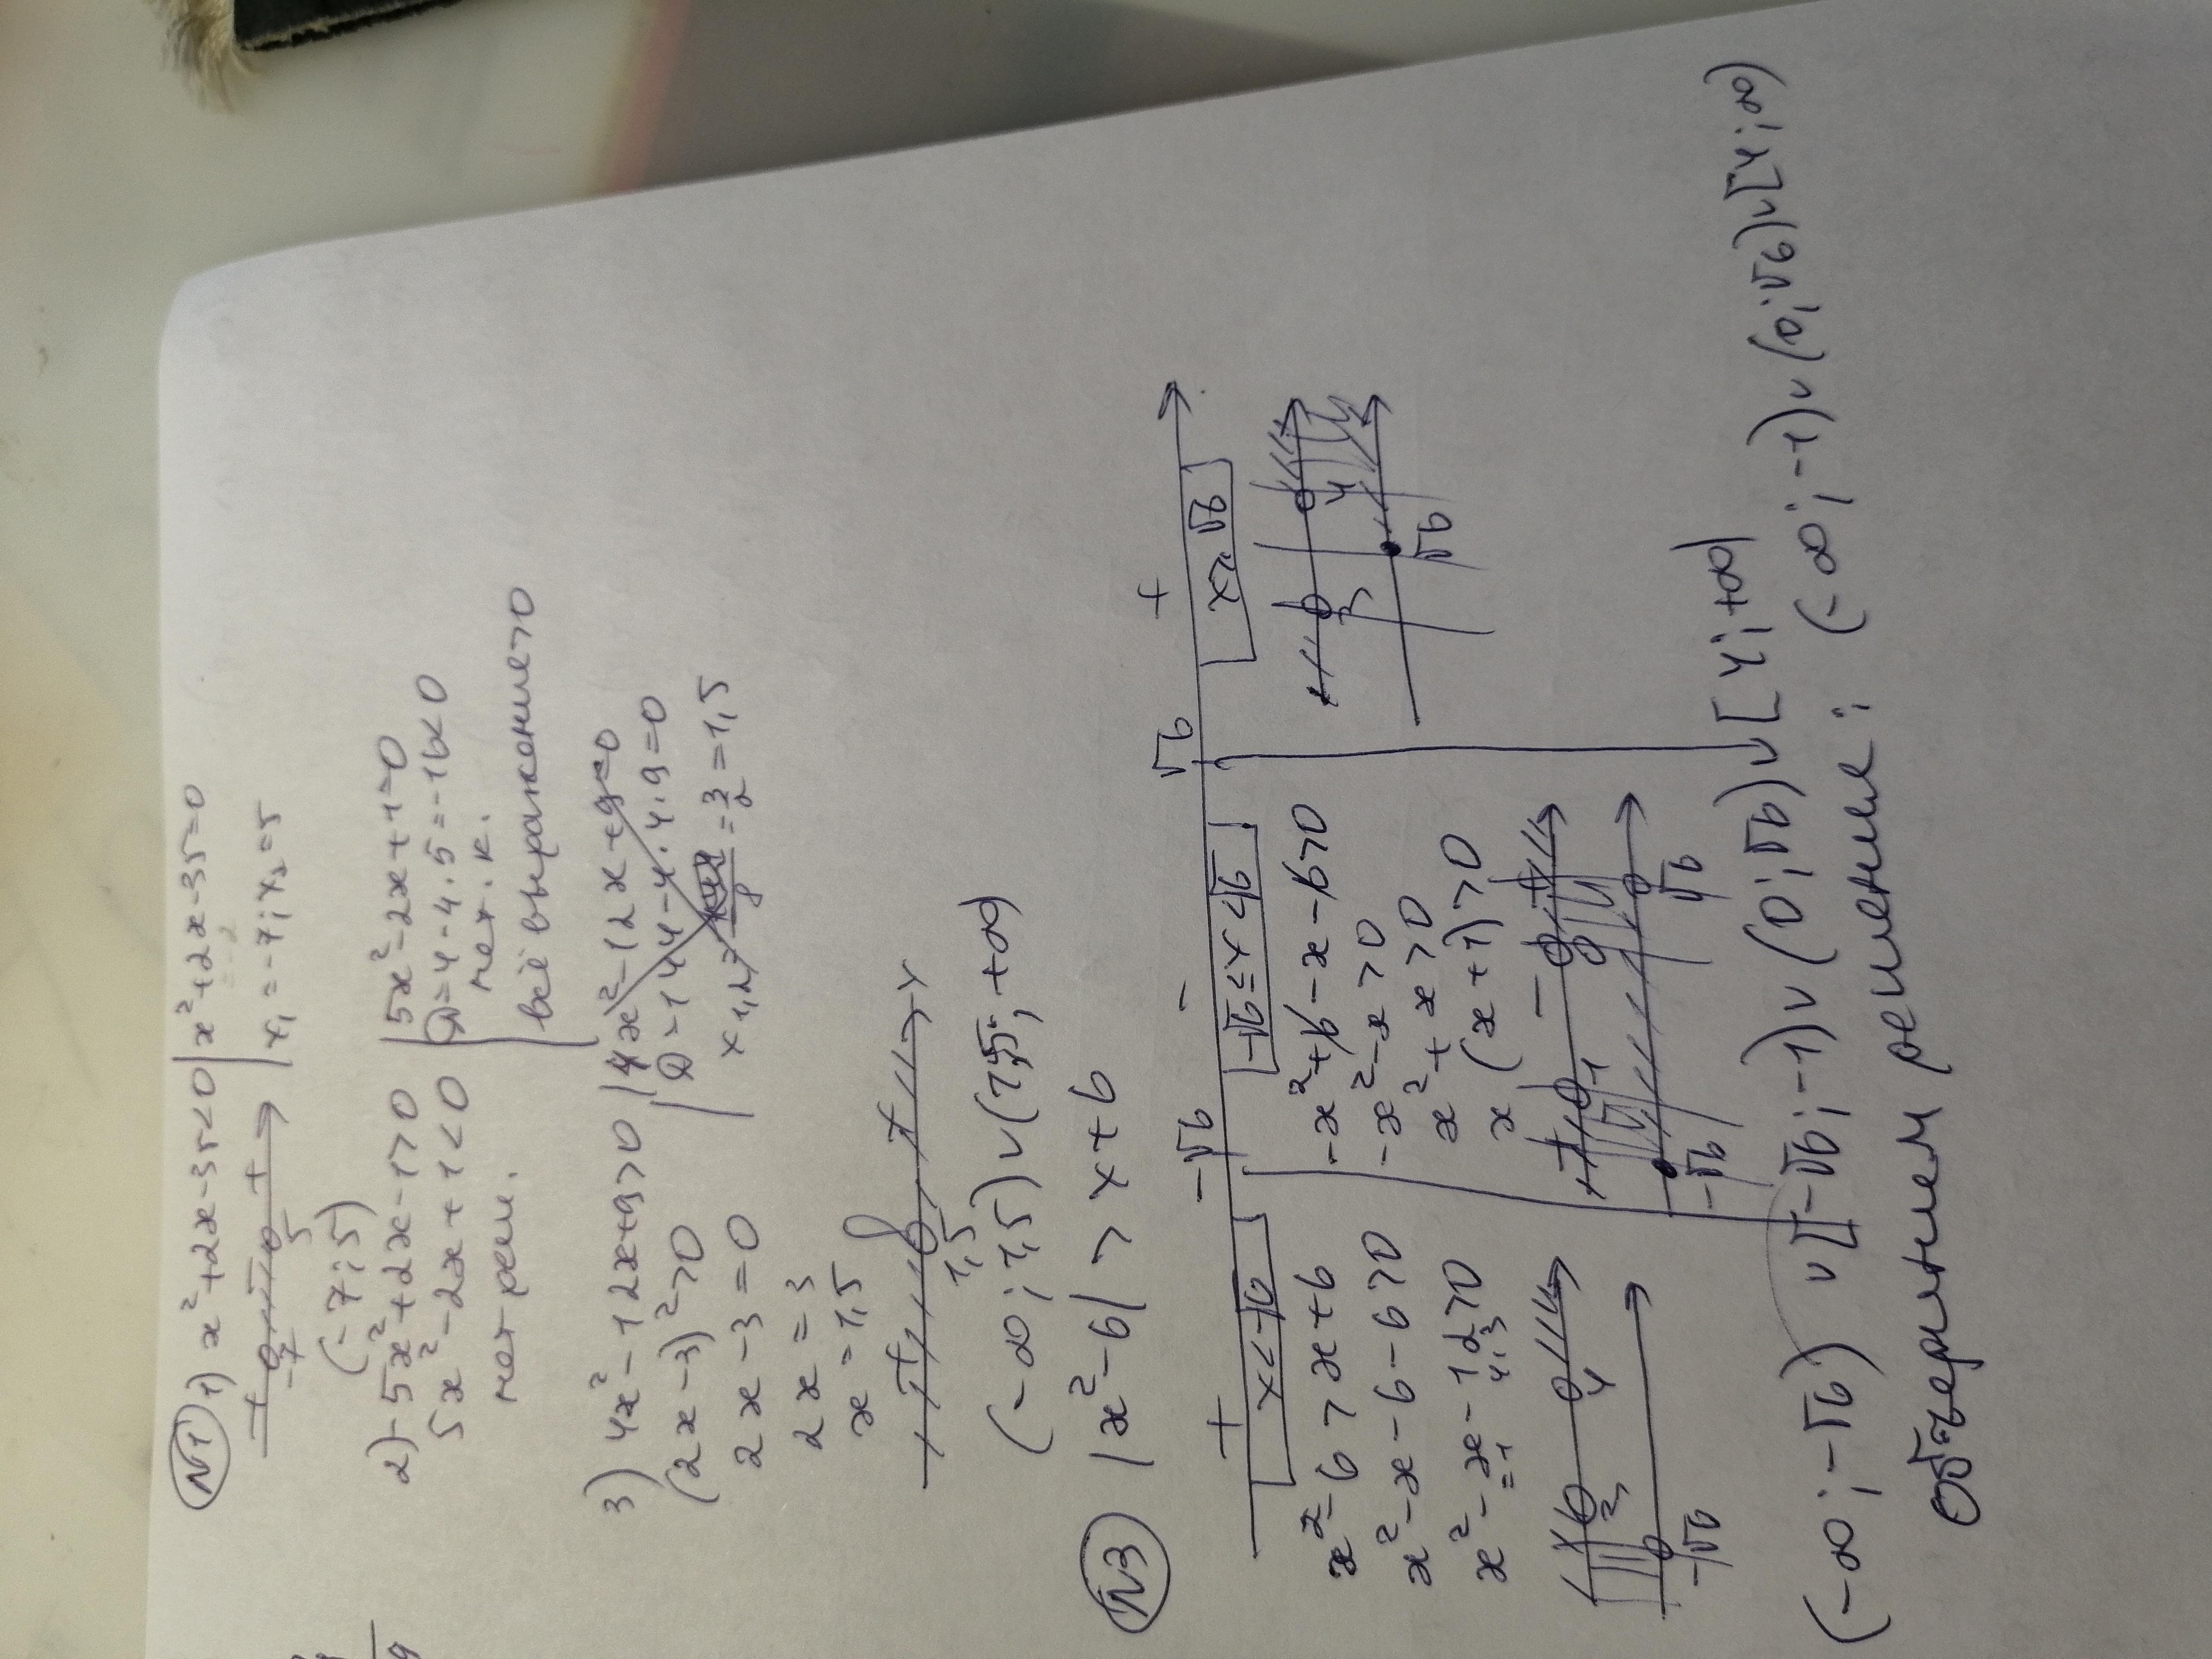 N1 1) x²+2x-35<0 | x²+2x-35=0
+ -7 - 5 + x₁=-7; x₂=5
(-7; 5)
2) -5x²+2x-1>0 | 5x²-2x+1=0
5x²-2x+1<0 D=4-4·5=-16<0
нет реш. нет. к.
всё выражение>0
3) 4x²-12x+9>0 | 4x²-12x+9=0
(2x-3)²>0 D=144-4·4·9=0
2x-3=0 x₁,₂= 8 =3/2=1,5
2x=3
x=1,5
+ 1,5 + x
(-∞; 1,5)∨(1,5; +∞)
N3 |x²-6| > x+6
+ -√6 - √6 +
x<-√6 -√6≤x<√6 x≥√6
x²-6>x+6 -x²+6-x-6>0
x²-x-6-6>0 -x²-x>0
x²-x-12>0 x²+x>0
=1 4; 3 x(x+1)>0
4 + -1 - 0 + 4
-√6 -√6 √6 √6
(-∞; -√6) ∨[-√6; -1)∨(0; √6)∨[4; +∞)
объединяем решение: (-∞; -1)∨(0; √6)∨[4; ∞)